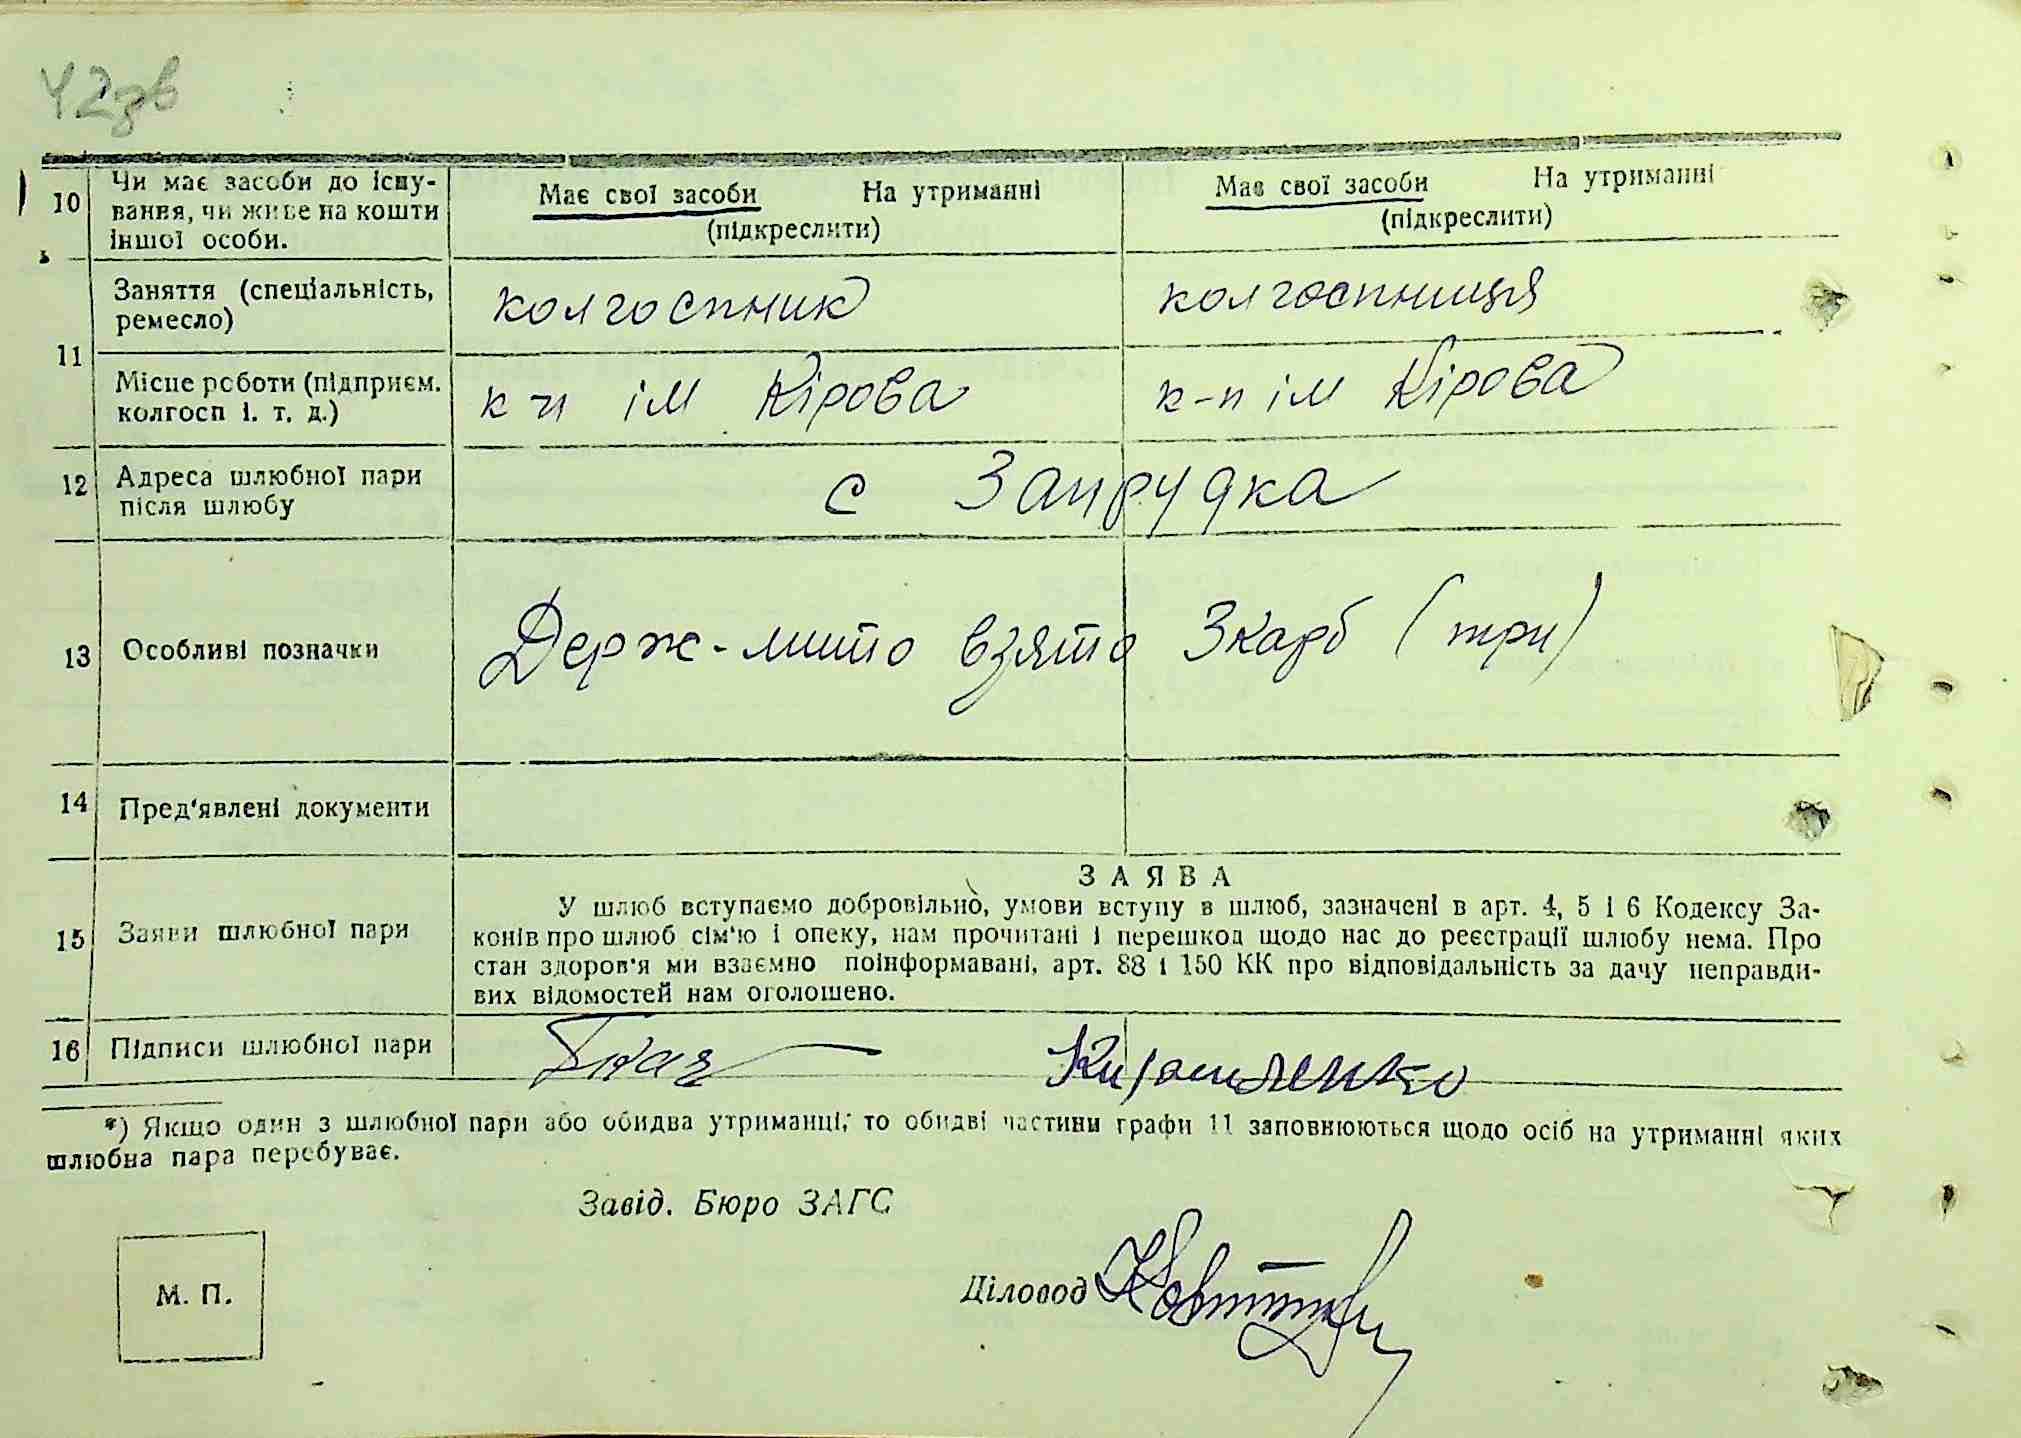 42зв
10 Чи має засоби до існу- Має свої засоби На утриманні Має свої засоби На утриманні
вання, чи живе на кошти (підкреслити) (підкреслити)
іншої особи.
11 Заняття (спеціальність, колгоспник колгоспниця
ремесло)
Місце роботи (підприєм. к-п ім Кірова к-п ім Кірова
колгосп і. т. д.)
12 Адреса шлюбної пари с Запрудка
після шлюбу
13 Особливі позначки Держ-мито взято 3 карб (три)
14 Пред'явлені документи
ЗАЯВА
15 Заяви шлюбної пари У шлюб вступаємо добровільно, умови вступу в шлюб, зазначені в арт. 4, 5 і 6 Кодексу За-
конів про шлюб сім'ю і опеку, нам прочитані і перешкод щодо нас до реєстрації шлюбу нема. Про
стан здоров'я ми взаємно поінформавані, арт. 88 і 150 КК про відповідальність за дачу неправди-
вих відомостей нам оголошено.
16 Підписи шлюбної пари
*) Якщо один з шлюбної пари або обидва утриманці, то обидві частини графи 11 заповнюються щодо осіб на утриманні яких
шлюбна пара перебуває.
Завід. Бюро ЗАГС
М. П.
Діловод